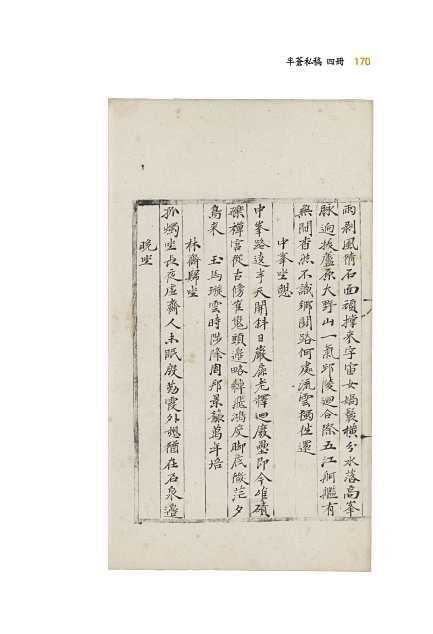 半蒼私稿 四冊 170
雨剝風隋石面頑撑來宇宙女媧鬟橫分水落高峯
脉逈拔盧原大野山一氣邱陵迴合際五江舸艦有
無間杳然不識鄉關路何處流雲獨往還
中峯坐憩
中峯路遠半天開斜日巖扉老釋迴廢壘即今堆磧
礫禪宮從古傍崔嵬頭邊略綽飛鴻度脚底微茫夕
鳥來 玉馬璇雲時陟降周邦景籙萬年培
林齋歸坐
孤燭坐長夜虛齋人未眠殷勤霞外想猶在石泉邊
晚坐